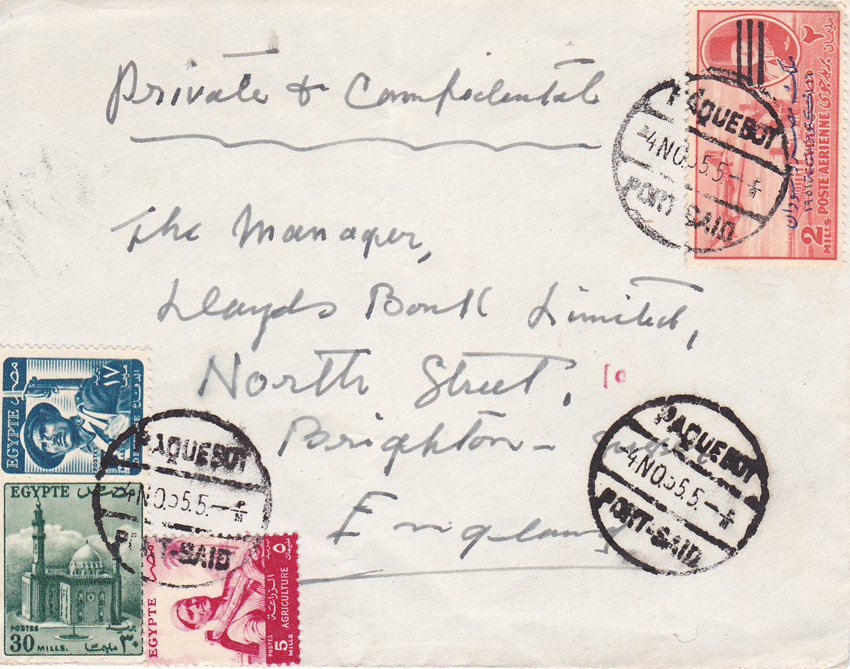 Private & Confidential
٢ مليمان
PAQUEBOT
4 NO.55.5-
PORT-SAID
POSTE AERIENNE
2
MILLS
The Manager,
Lloyds Bank Limited,
North Street,
Brighton - Sussex
England
مصر
١٧
EGYPTE
PAQUEBOT
4 NO.55.5-
PORT-SAID
PAQUEBOT
4 NO.55.5-
PORT-SAID
EGYPTE
POSTES
30 MILLS.
٣٠
EGYPTE
مصر
٥
الزراعة
AGRICULTURE
POSTES
5
MILLS